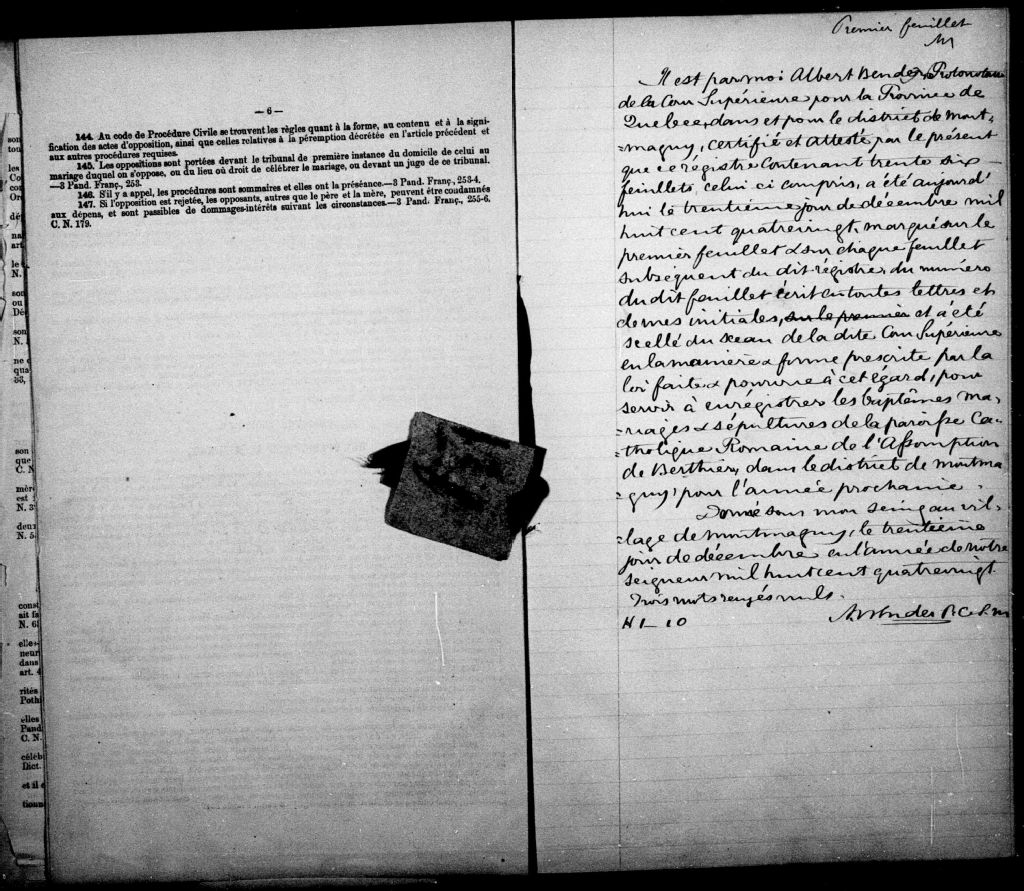 — 6 —
144. Au code de Procédure Civile se trouvent les règles quant à la forme, au contenu et à la signi-
fication des actes d'opposition, ainsi que celles relatives à la péremption décrétée en l'article précédent et
aux autres procédures requises.
145. Les oppositions sont portées devant le tribunal de première instance du domicile de celui au
mariage duquel on s'oppose, ou du lieu où droit de célébrer le mariage, ou devant un juge de ce tribunal.
—3 Pand. Franç., 253.
146. S'il y a appel, les procédures sont sommaires et elles ont la préséance.—3 Pand. Franç., 253-4.
147. Si l'opposition est rejetée, les opposants, autres que le père et la mère, peuvent être condamnés
aux dépens, et sont passibles de dommages-intérêts suivant les circonstances.—3 Pand. Franç., 255-6.
C. N. 179.
Premier feuillet
Il est par moi Albert Bender, Protonotaire
de la Cour Supérieure pour la Province de
Quebec, dans et pour le district de Mont-
=magny, certifié et Attesté par le présent
que ce régistre contenant trente six
feuillets, celui ci compris, a été aujourd'
hui le trentième jour de décembre mil
huit cent quatrevingt, marqué sur le
premier feuillet & sur chaque feuillet
subséquent du dit régistre, du numéro
du dit feuillet écrit en toutes lettres et
de mes initiales, sur le premier et a été
scellé du sceau de la dite Cour Supérieure
en la manière & forme prescrite par la
loi faite & pourvue à cet égard, pour
servir à enrégistrer les baptêmes ma-
=riages & sépultures de la paroisse Ca-
=tholique Romaine de l'Assomption
de Berthier, dans le district de Montma-
=gny, pour l'année prochaine.
Donné sous mon seing au vil-
=lage de Montmagny, le trentième
jour de décembre en l'année de notre
seigneur mil huit cent quatrevingt
Trois mots rayés nuls.
Bender P.C.S.M